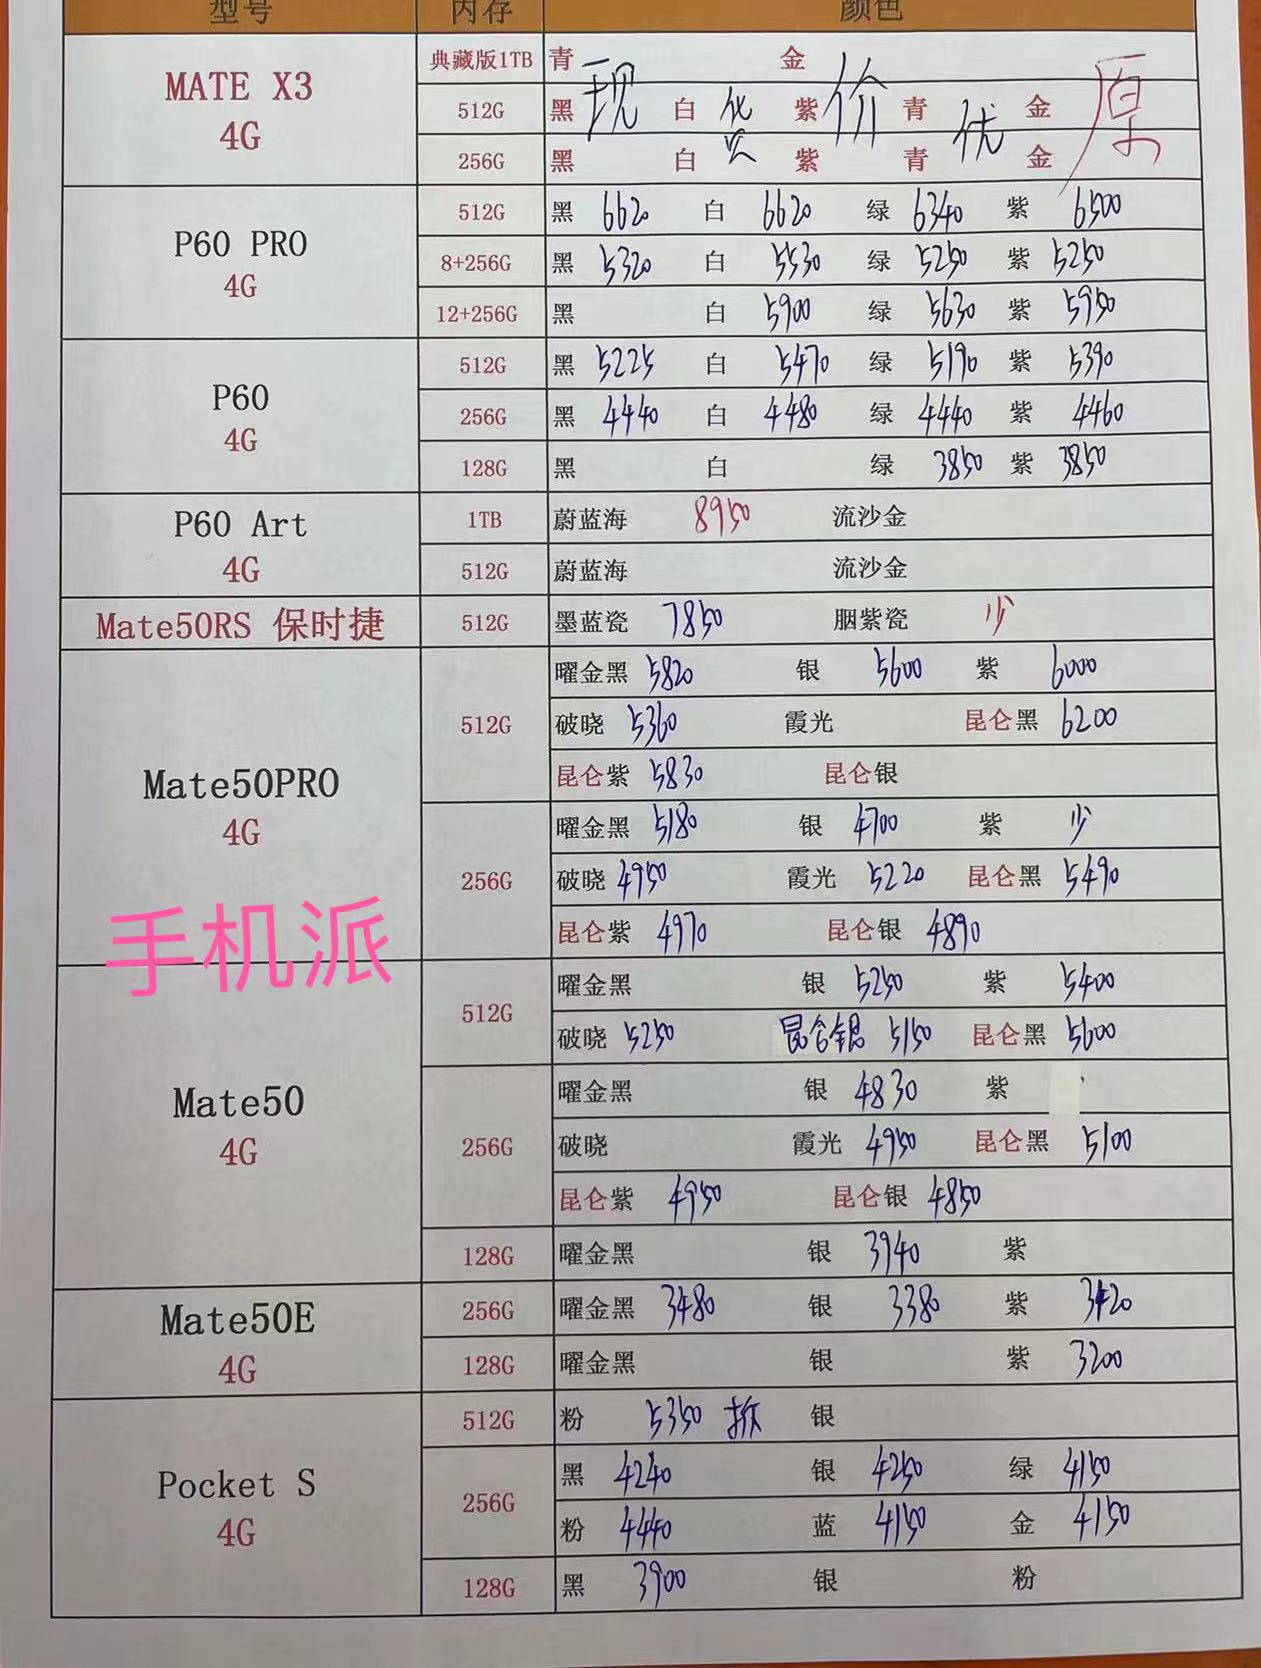 型号 内存 颜色
MATE X3
4G
典藏版1TB 青 金
512G 黑 白 紫 青 金
256G 黑 白 紫 青 金
现货价优 原
P60 PRO
4G
512G 黑 6620 白 6620 绿 6340 紫 6500
8+256G 黑 5320 白 5530 绿 5250 紫 5250
12+256G 黑 白 5900 绿 5630 紫 5950
P60
4G
512G 黑 5225 白 5470 绿 5190 紫 5390
256G 黑 4440 白 4480 绿 4440 紫 4460
128G 黑 白 绿 3850 紫 3850
P60 Art
4G
1TB 蔚蓝海 8950 流沙金
512G 蔚蓝海 流沙金
Mate50RS 保时捷 512G 墨蓝瓷 7850 胭紫瓷 少
Mate50PRO
4G
512G 曜金黑 5820 银 5600 紫 6000
破晓 5360 霞光 昆仑黑 6200
昆仑紫 5830 昆仑银
256G 曜金黑 5180 银 4700 紫 少
破晓 4950 霞光 5220 昆仑黑 5490
昆仑紫 4970 昆仑银 4890
手机派
Mate50
4G
512G 曜金黑 银 5250 紫 5400
破晓 5250 昆仑银 5150 昆仑黑 5600
256G 曜金黑 银 4830 紫
破晓 霞光 4950 昆仑黑 5100
昆仑紫 4950 昆仑银 4850
128G 曜金黑 银 3940 紫
Mate50E
4G
256G 曜金黑 3480 银 3380 紫 3420
128G 曜金黑 银 紫 3200
Pocket S
4G
512G 粉 5350 拆 银
256G 黑 4240 银 4250 绿 4150
粉 4440 蓝 4150 金 4150
128G 黑 3900 银 粉